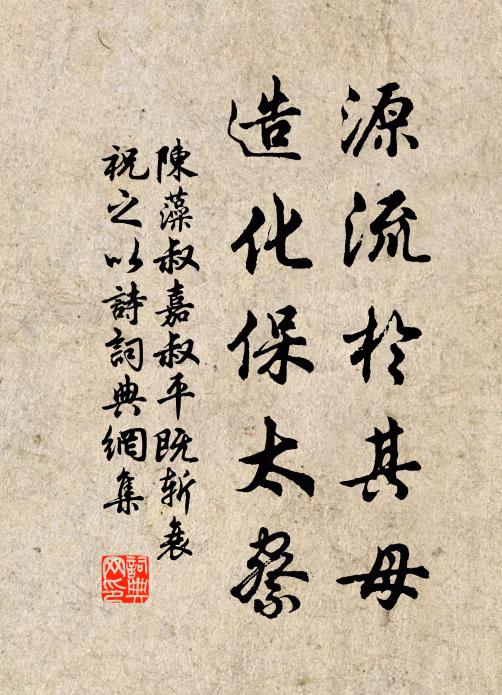 源流於其母
造化保太察
陳藻叔嘉叔平既斬衰
祝之以詩詞典網集
詞典網印